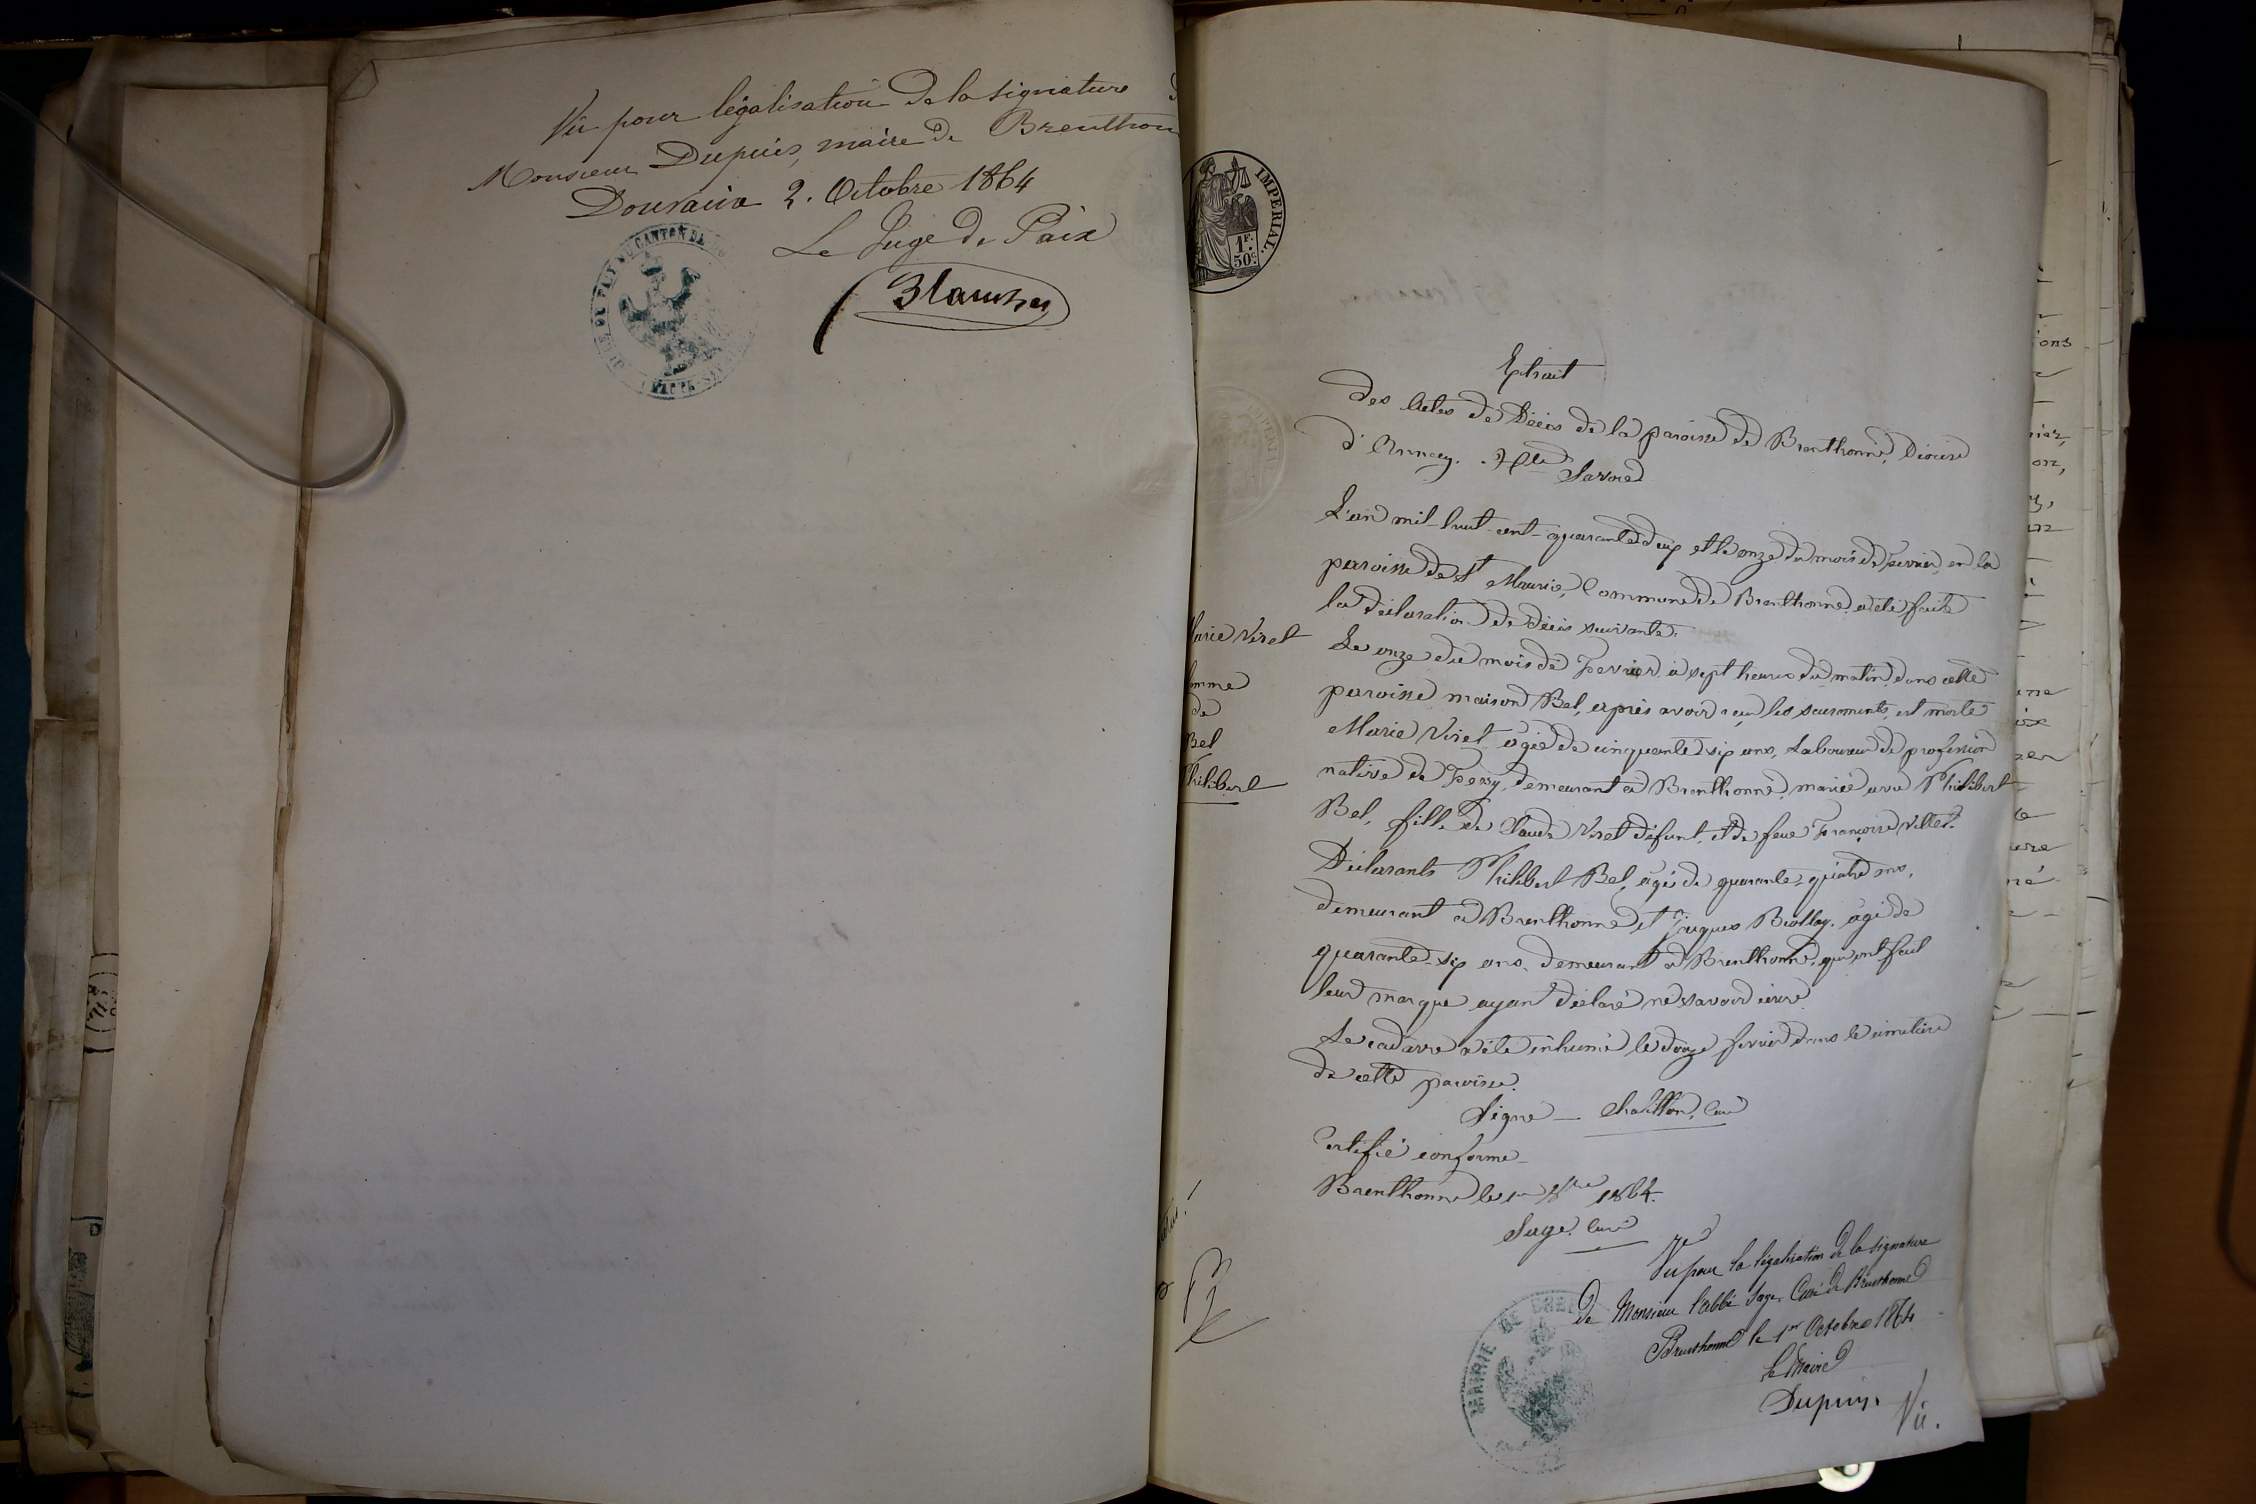 Vu pour légalisation de la signature
Monsieur Dupuis, maire de Brenthon
Douvaine 2. Octobre 1864
Le Juge de Paix
CANTON DE
IMPERIAL.
1F.
50c.
Extrait
des actes de Décès de la paroisse de Brenthonne, Diocèse
d'Annecy. Hte Savoie
L'an mil-huit-cent-quarante deux et le onze du mois de Fevrier, en la
paroisse de St Maurice, Commune de Brenthonne, a été faite
la déclaration de décès suivante.
Marie Viret
femme
de
Bel
Philibert
Le onze du mois de Fevrier à sept heures du matin, dans cette
paroisse maison Bel, après avoir reçu les sacrements, est morte
Marie Viret agée de cinquante six ans, Laboureur de profession
native de Fessy, demeurant à Brenthonne, mariée avec Philibert
Bel, fille de Claude Viret défunt, et de feue Françoise Villet.
Déclarants Philibert Bel, âgé de quarante-quatre ans,
demeurant à Brenthonne et Jaques Biollay, âgé de
quarante-six ans, demeurant à Brenthonne, qui ont fait
leur marque ayant déclaré ne savoir écrire
Le cadavre a été inhumé le douze fevrier dans le cimetière
de cette paroisse.
Signé — Chatillon, Curé
Certifié conforme
Brenthonne le 1er 8bre 1864.
Sage, Curé
Vu pour la légalisation de la signature
de Monsieur l'abbé Sage, Curé de Brenthonne
Brenthonne le 1er Octobre 1864
Le Maire
Dupuis
Vu.
MAIRIE DE BRE